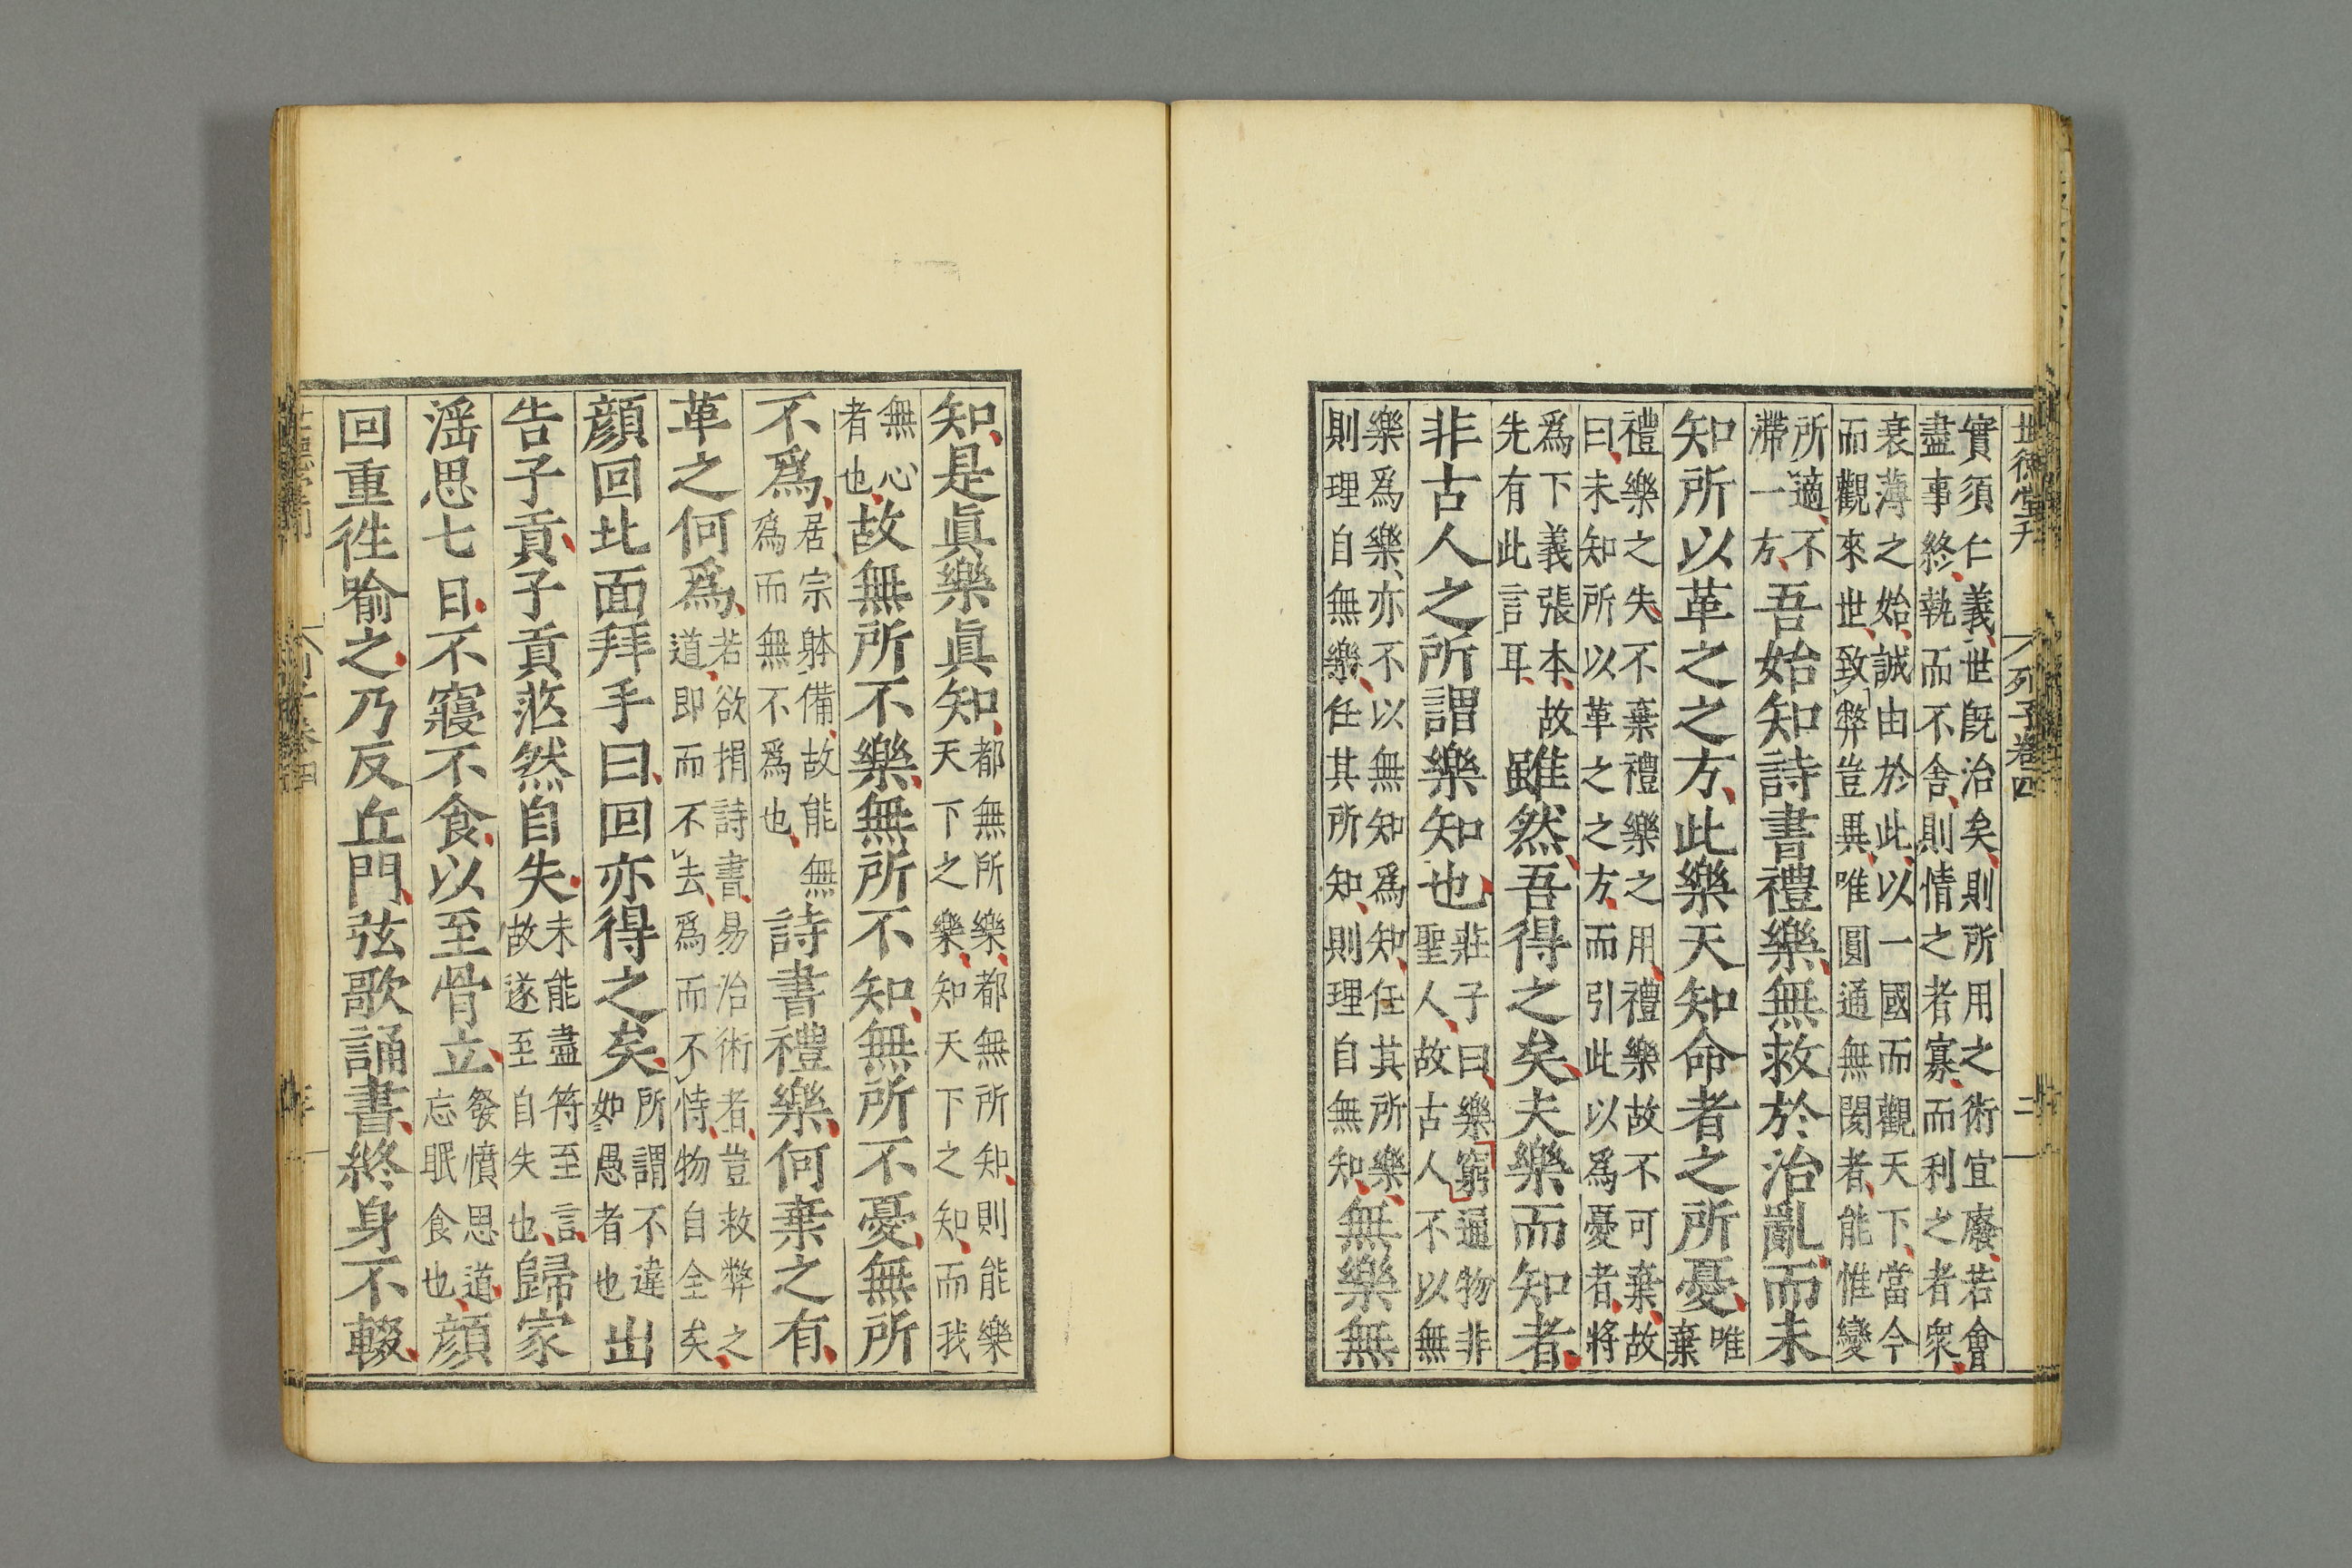 世德堂刊 列子卷四 二
實須仁義世旣治矣則所用之術宜廢若會
盡事終執而不舍則情之者寡而利之者衆
衰薄之始誠由於此以一國而觀天下當今
而觀來世致弊豈異唯圓通無閡者能惟變
所適不滯一方吾始知詩書禮樂無救於治亂而未
知所以革之之方此樂天知命者之所憂唯棄
禮樂之失不棄禮樂之用禮樂故不可棄故
曰未知所以革之之方而引此以爲憂者將
爲下義張本故先有此言耳雖然吾得之矣夫樂而知者
非古人之所謂樂知也莊子曰樂窮通物非聖人故古人不以無
樂爲樂亦不以無知爲知任其所樂則理自無樂任其所知則理自無知無樂無
知是眞樂眞知都無所樂都無所知則能樂天下之樂知天下之知而我
無心者也故無所不樂無所不知無所不憂無所
不爲居宗躰備故能無爲而無不爲也詩書禮樂何棄之有
革之何爲若欲捐詩書易治術者豈救弊之道即而不去爲而不恃物自全矣
顏回北面拜手曰回亦得之矣所謂不違如愚者也出
告子貢子貢茫然自失未能盡符至言故遂至自失也歸家
淫思七日不寢不食以至骨立發憤思道忘眠食也顏
回重往喻之乃反丘門弦歌誦書終身不輟